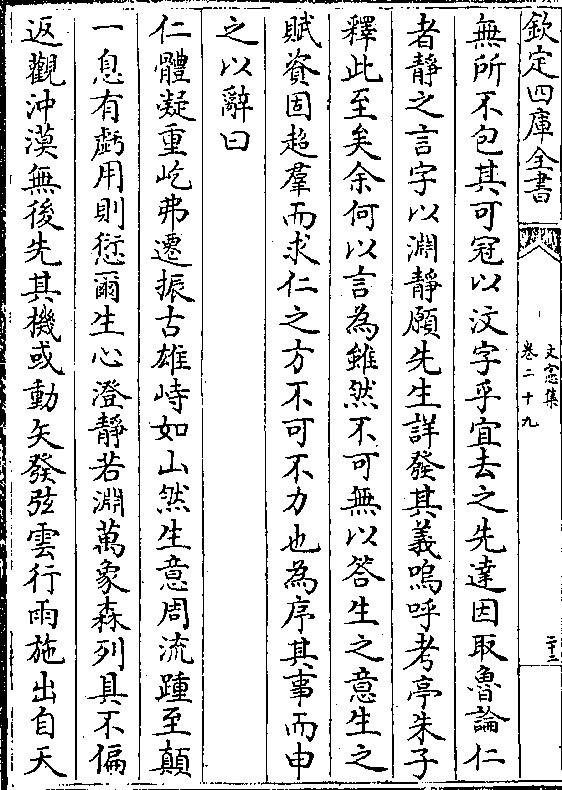 欽定四庫全書
文憲集
卷二十九
二十三
無所不包其可冠以汶字乎宜去之先達因取魯論仁
者靜之言字以淵靜願先生詳發其義嗚呼考亭朱子
釋此至矣余何以言為雖然不可無以答生之意生之
賦資固超羣而求仁之方不可不力也為序其事而申
之以辭曰
仁體凝重屹弗遷振古雄峙如山然生意周流踵至顛
一息有虧用則愆爾生心澄靜若淵萬象森列具不偏
返觀沖漠無後先其機或動矢發弦雲行雨施出自天